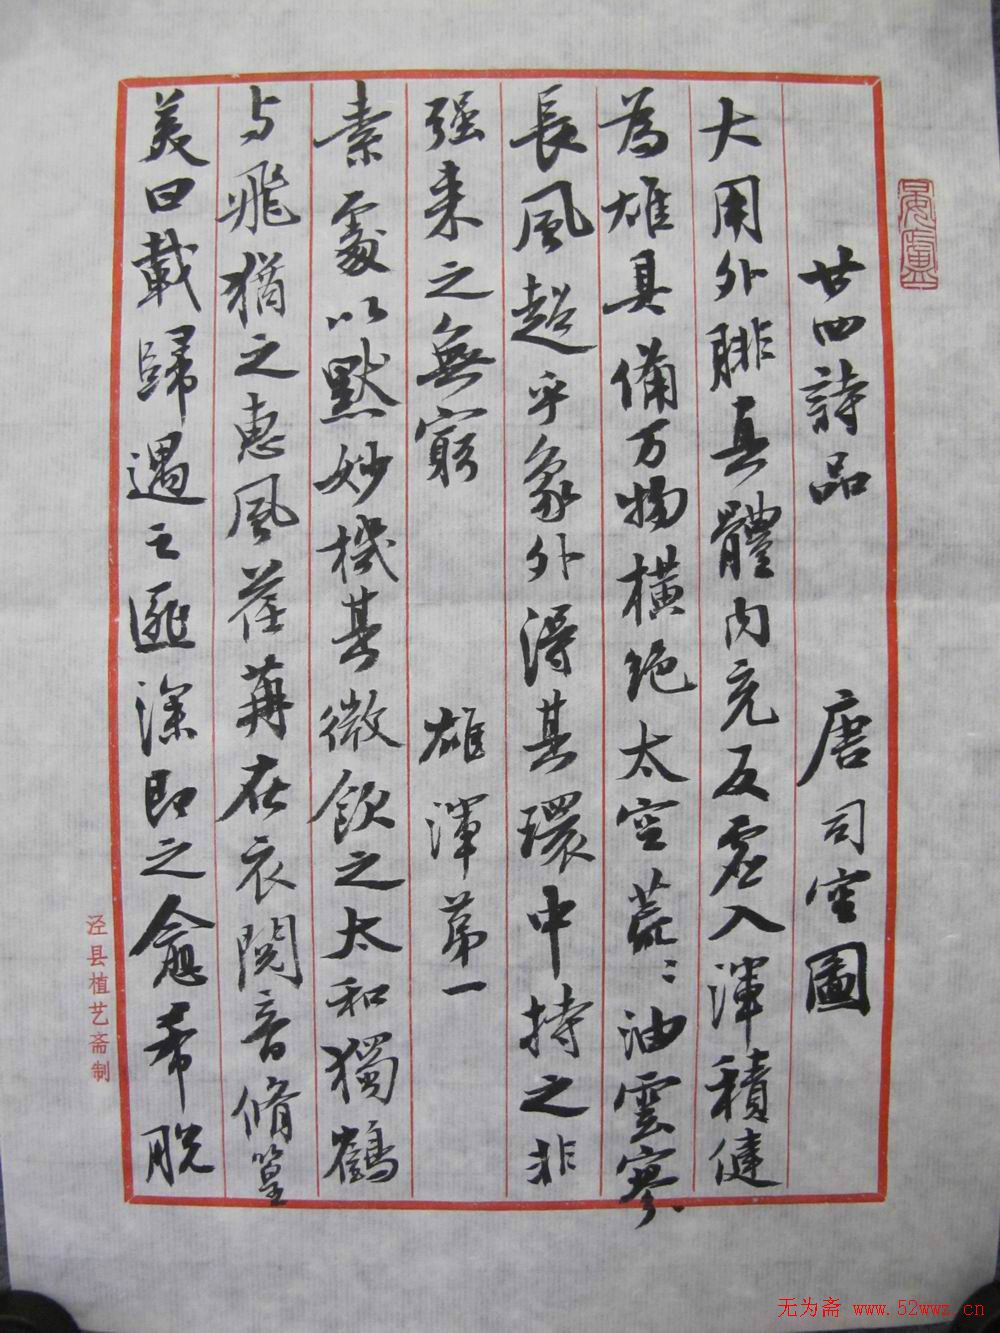 廿四詩品 唐司空圖
大用外腓真體內充反虛入渾積健
為雄具備万物橫絕太空荒〻油雲寥〻
長風超乎象外得其環中持之非
强来之無窮 雄渾第一
素處以默妙機其微飲之太和獨鶴
与飛猶之惠風荏苒在衣閱音脩篁
美曰載歸遇之匪深即之愈希脫
泾县植艺斋制
无为斋 www.52wwz.cn